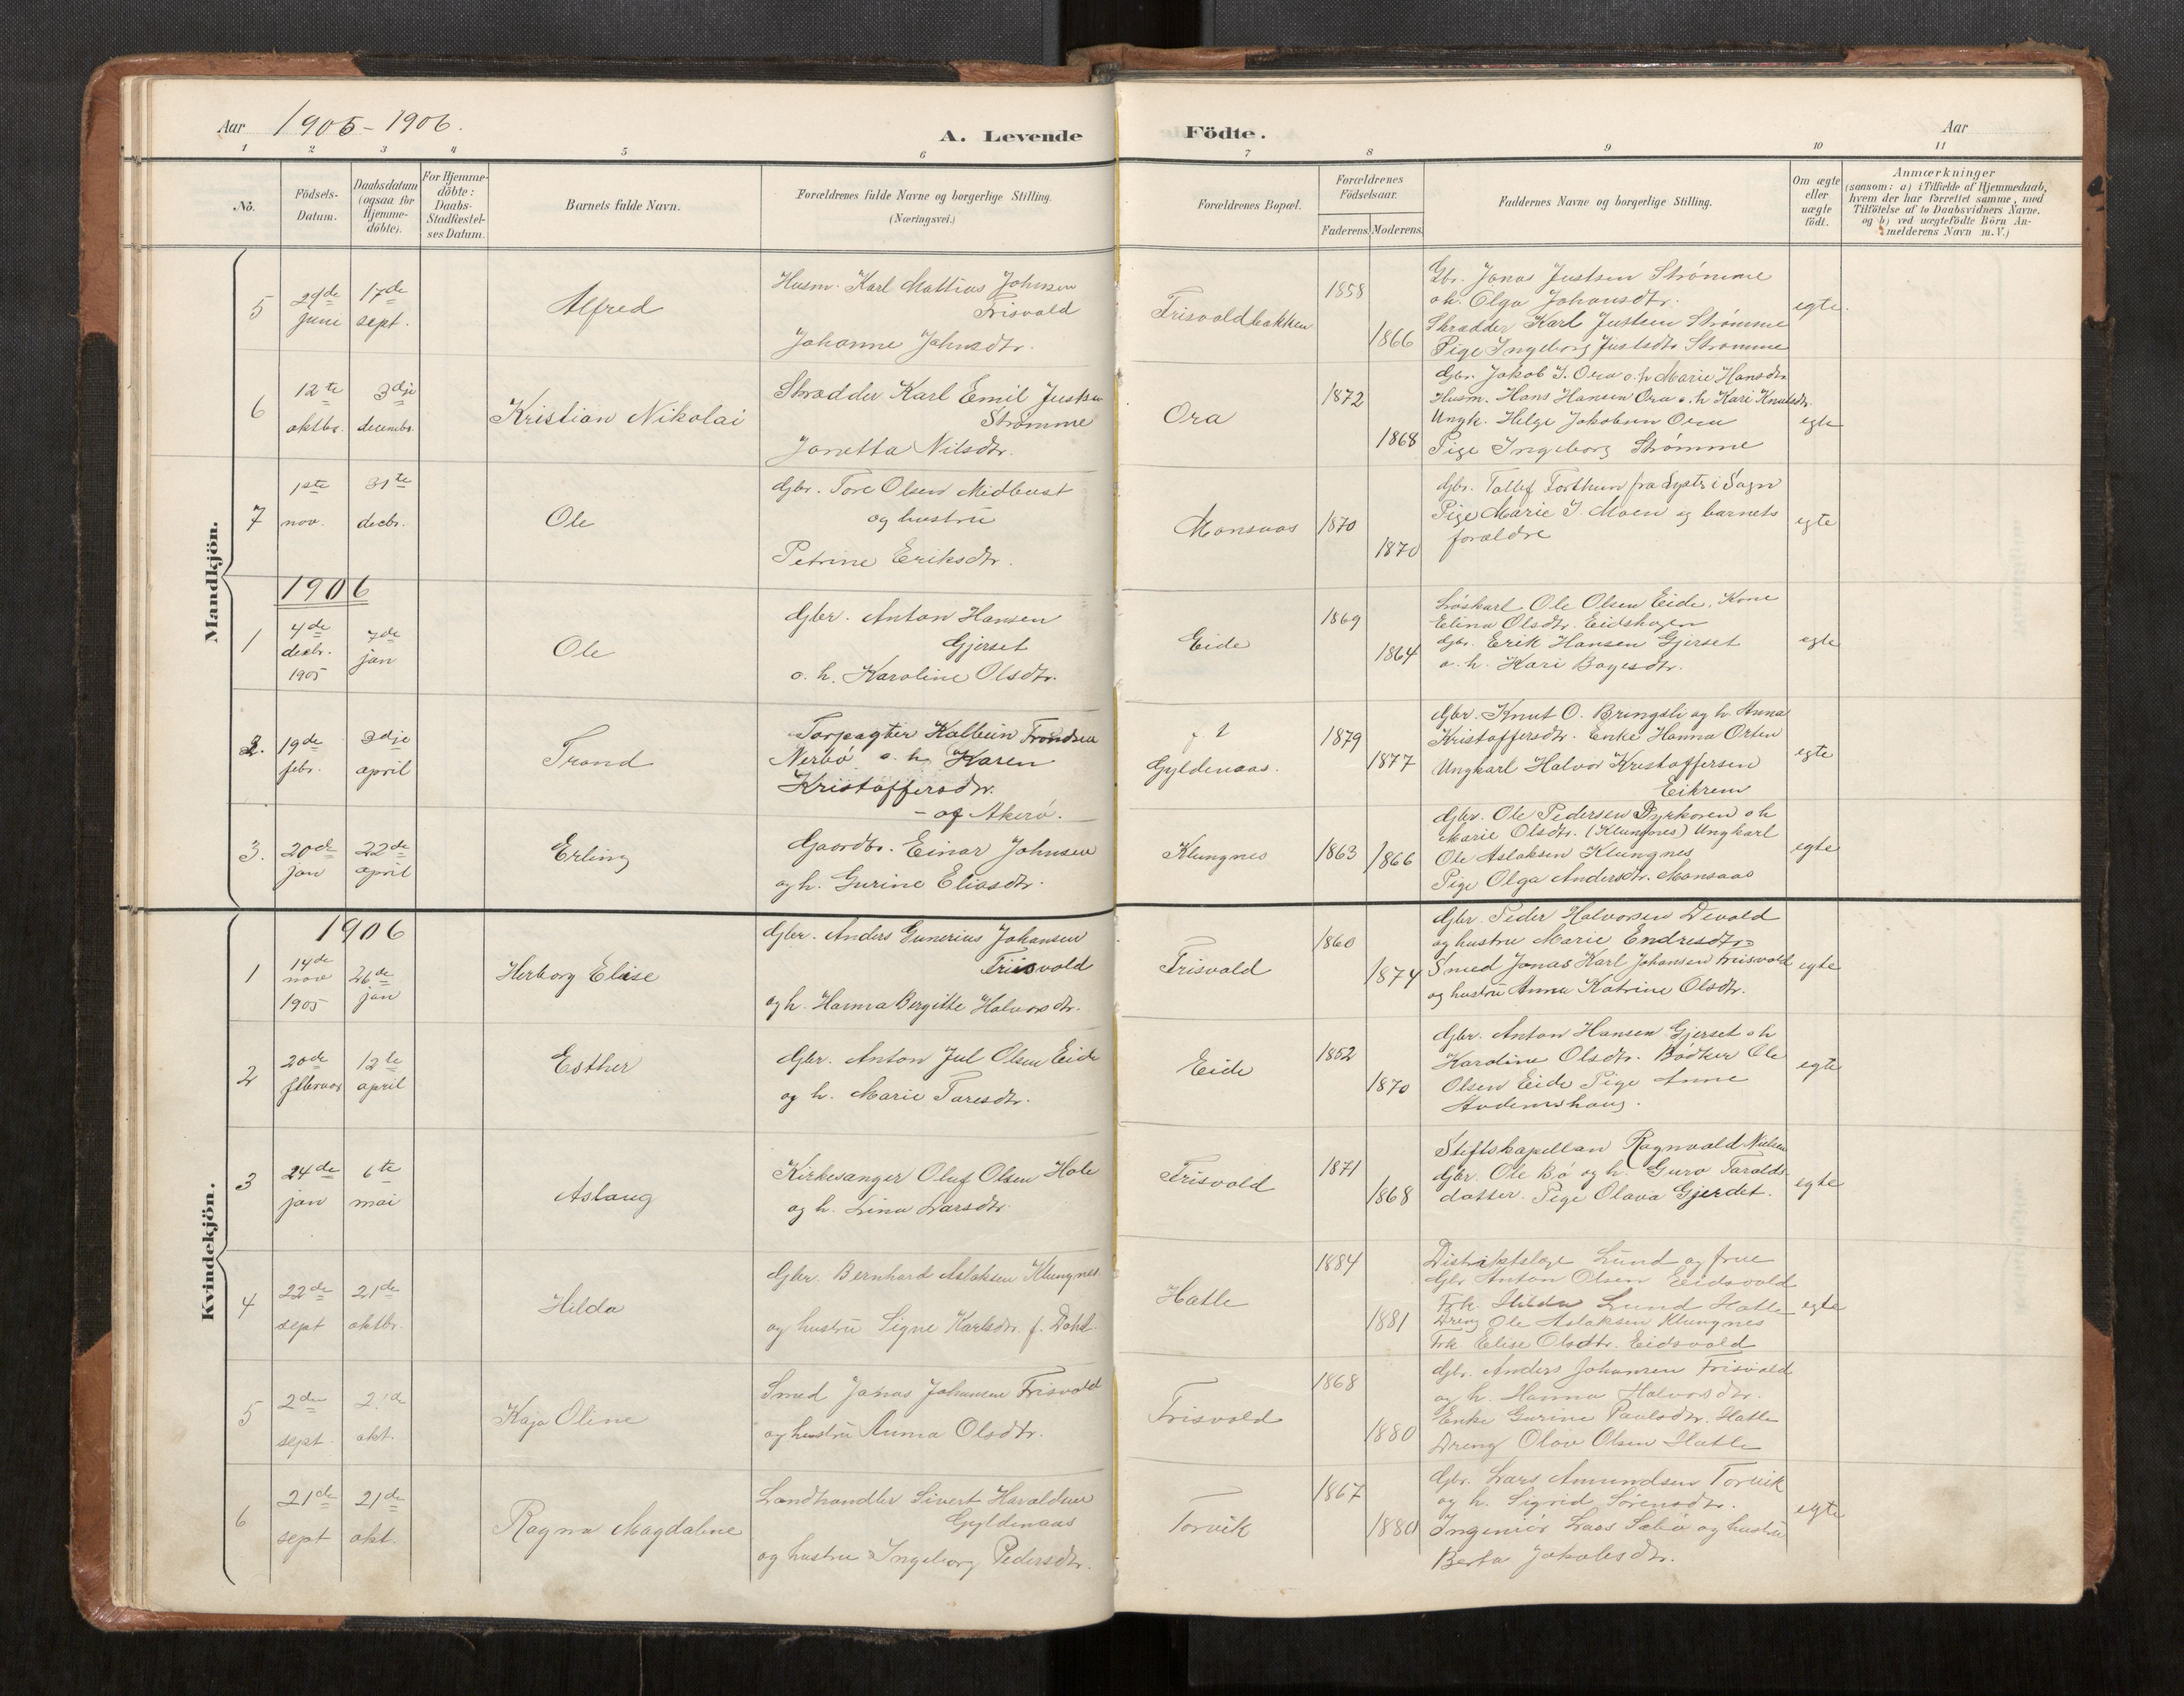 Aar 1905-1906.
A. Levende Födte.
Aar
1 2 3 4 5 6 7 8 9 10 11
No.
Födsels-Datum.
Daabsdatum (ogsaa for Hjemmedöbte).
For Hjemmedöbte: Daabs-Stadfæstelses Datum.
Barnets fulde Navn.
Forældrenes fulde Navne og borgerlige Stilling. (Næringsvei.)
Forældrenes Bopæl.
Forældrenes Födselsaar.
Faderens. Moderens.
Faddernes Navne og borgerlige Stilling.
Om ægte eller uægte födt.
Anmærkninger
(saasom: a) i Tilfælde af Hjemmedaab,
hvem der har forrettet samme, med
Tilföielse af to Daabsvidners Navne.
og b) ved uægtefödte Börn Anmelderens Navn m.V.)
Mandkjön.
5 29de juni 17de sept. Alfred
Husm. Karl Mattias Johnsen
Frisvold
Johanne Johnsdtr.
Frisvoldbakken 1858 1866
Gbr. Jonas Justsen Strømme
o h. Olga Johansdtr.
Skrædder Karl Justsen Strømme
Pige Ingeborg Justsdtr Strømme
egte.
6 12te oktbr. 3dje decembr. Kristian Nikolai
Skrædder Karl Emil Justsen
Strømme
Janetta Nilsdtr.
Ora 1872 1868
Gbr. Jakob J. Ora o. h Marie Hansdtr.
Husm. Hans Hansen Ora o. h Kari Knutsdtr.
Ungk. Helge Jakobsen Ora
Pige Ingeborg Strømme
egte
7 1ste nov. 31te decbr. Ole
Gbr. Tore Olsen Midbust
og hustru
Petrine Eriksdtr.
Monsaas 1870 1870
Gbr. Tollef Forthun fra Lyster i Sogn
Pige Marie J. Moen og barnets
forældre
egte
1906
1 4de decbr. 1905 7de jan Ole
Gbr. Anton Hansen
Gjerset
o. h. Karoline Olsdtr.
Eide 1869 1864
Løskarl Ole Olsen Eide, Kone
Elina Olsdtr. Eidshagen
Gbr. Erik Hansen Gjerset
o. h. Kari Boyesdtr.
egte
2. 19de febr. 3dje april Trond
Forpagter Kolbein Trondsen
Nerbø o. h. Karen
Kristoffersdtr.
- af Akerø.
Gyldenaas. 1879 1877
Gbr. Knut O. Bringsli og h. Anna
Kristoffersdtr. Enke Hanna Orten
Ungkarl Halvor Kristoffersen
Eikrem
egte
3. 20de jan 22de april Erling
Gaardbr. Einar Johnsen
og h. Gurine Eliasdtr.
Klungnes 1863 1866
Gbr. Ole Pedersen Dyrkoren o h
Marie Olsdtr. (Klungnes) Ungkarl
Ole Aslaksen Klungnes
Pige Olga Andersdtr. Monsaas
egte
Kvindekjön.
1906
1 14de nov 1905 26de jan Herborg Elise
Gbr. Anders Gunerius Johansen
Frisvold
og h. Hanna Bergitte Halvorsdtr.
Frisvold 1860 1874
Gbr. Peder Halvorsen Devold
og hustru Marie Endresdtr
Smed Jonas Karl Johansen Frisvold
og hustru Anna Katrine Olsdtr.
egte
2 20de februar 12te april Esther
Gbr. Anton Jul Olsen Eide
og h. Marie Toresdtr.
Eide 1852 1870
Gbr. Anton Hansen Gjerset o h
Karoline Olsdtr. Bødker Ole
Olsen Eide Pige Anne
egte
3 24de jan 6te mai Aslaug
Kirkesanger Oluf Olsen Hole
og h. Lina Larsdtr.
Frisvold 1871 1868
Stiftskapellan Ragnvald Nielsen
Gbr. Ole Bø og h. Guro Taralds-
datter. Pige Olava Gjerdet.
egte
4 22de sept 21de oktbr. Hilda
Gbr. Bernhard Aslaksen Klungnes
og hustru Signe Karlsdtr. f. Dahl.
Hatle 1884 1881
Distriktslæge Lund og frue
Gbr Anton Olsen Eidsvold
Frk. Hilda Lund Hatle
Dreng Ole Aslaksen Klungnes
Frk Elise Olsdtr. Eidsvold
egte
5 2den sept. 21de okt. Kaja Oline
Smed Jonas Johansen Frisvold
og hustru Anna Olsdtr.
Frisvold 1868 1880
Gbr. Anders Johansen Frisvold
og h. Hanna Halvorsdtr.
Enke Gurine Paulsdtr. Hatle
Dreng Olav Olsen Hatle
6 21de sept 21de okt. Ragna Magdalene
Landhandler Sivert Haraldsen
Gyldenaas
og hustru Ingeborg Pedersdtr.
Torvik 1867 1880
Gbr. Lars Amundsen Torvik
og h. Sigrid Sørensdtr.
Ingeniør Lars Sæbø og hustru
Berta Jakobsdtr.
egte